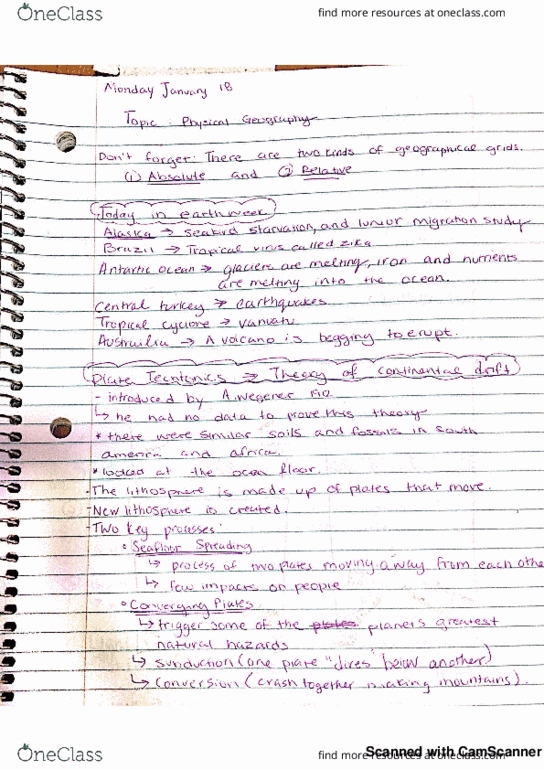 OneClass
find more resources at oneclass.com
Monday January 18
Topic: Physical Geography
Don't forget: There are two kinds of geographical grids.
(1) Absolute and (2) Relative
Today in earth week
Alaska → seabird starvation, and lunar migration study
Brazil → Tropical virus called zika
Antartic ocean → glaciers are melting, iron and nutrients
are melting into the ocean.
Central turkey → earthquakes
Tropical cyclone → vanuatu
Austrailia → A volcano is begging to erupt.
Plate Tecntonics → Theory of continental drift
- introduced by A. Wegener
↳ he had no data to prove this theory
* there were similar soils and fossils in South
america and africa.
* looked at the ocean floor.
- The lithosphere is made up of plates that move.
- New lithosphere is created.
- Two key prosses:
• Seafloor Spreading
↳ process of two plates moving away from each othe
↳ few impacts on people
• Converging Plates
↳ trigger some of the plates planets greatest
natural hazards
↳ subduction (one plate "dives" below another)
↳ Conversion (crash together making mountains).
OneClass
find more resources at oneclass.com
Scanned with CamScanner